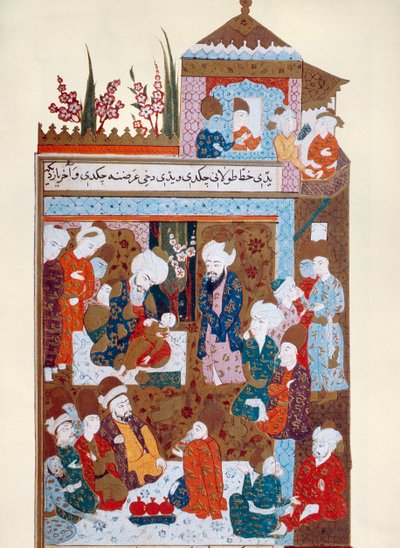 یدی خط طولانی چکدی و یدی دخی عرضنه چکدی و آخر یارد